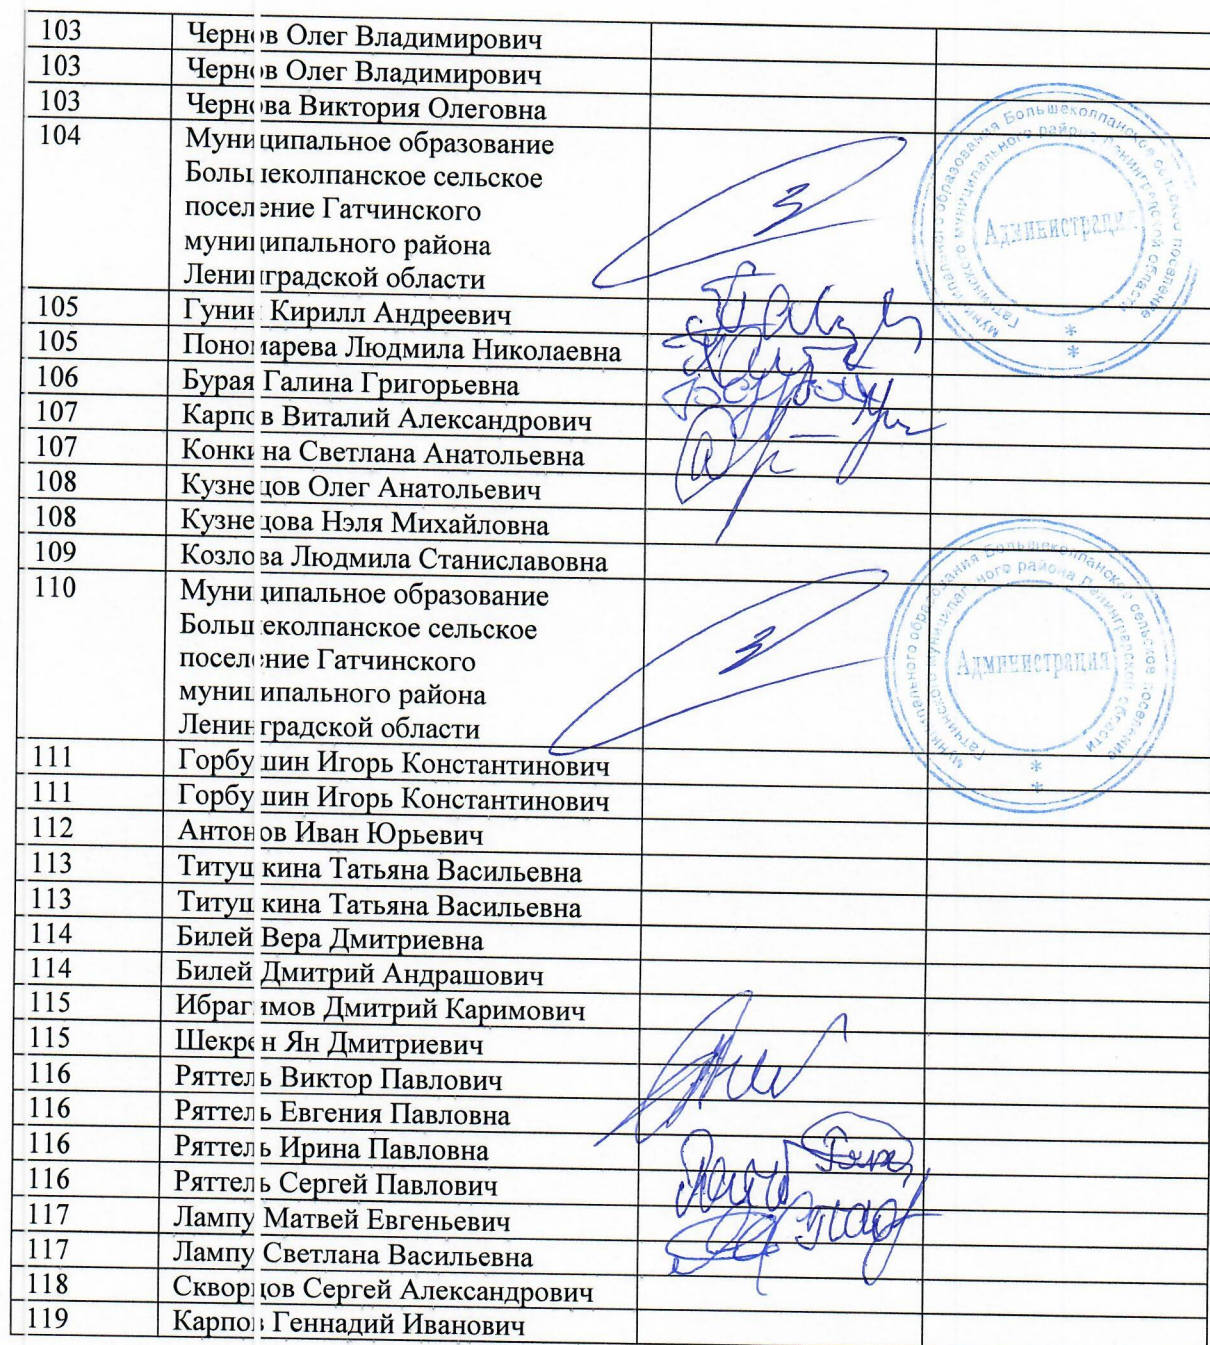 103 Чернов Олег Владимирович
103 Чернов Олег Владимирович
103 Чернова Виктория Олеговна
104 Муниципальное образование
Большеколпанское сельское
поселение Гатчинского
муниципального района
Ленинградской области
муниципального образования Большеколпанское сельское поселение
Гатчинского муниципального района Ленинградской области
Администрация
105 Гунин Кирилл Андреевич
105 Пономарева Людмила Николаевна
106 Бурая Галина Григорьевна
107 Карпов Виталий Александрович
107 Конкина Светлана Анатольевна
108 Кузнецов Олег Анатольевич
108 Кузнецова Нэля Михайловна
109 Козлова Людмила Станиславовна
110 Муниципальное образование
Большеколпанское сельское
поселение Гатчинского
муниципального района
Ленинградской области
муниципального образования Большеколпанское сельское поселение
Гатчинского муниципального района Ленинградской области
Администрация
111 Горбушин Игорь Константинович
111 Горбушин Игорь Константинович
112 Антонов Иван Юрьевич
113 Титушкина Татьяна Васильевна
113 Титушкина Татьяна Васильевна
114 Билей Вера Дмитриевна
114 Билей Дмитрий Андрашович
115 Ибрагимов Дмитрий Каримович
115 Шекрен Ян Дмитриевич
116 Ряттель Виктор Павлович
116 Ряттель Евгения Павловна
116 Ряттель Ирина Павловна
116 Ряттель Сергей Павлович
117 Лампу Матвей Евгеньевич
117 Лампу Светлана Васильевна
118 Скворцов Сергей Александрович
119 Карпов Геннадий Иванович